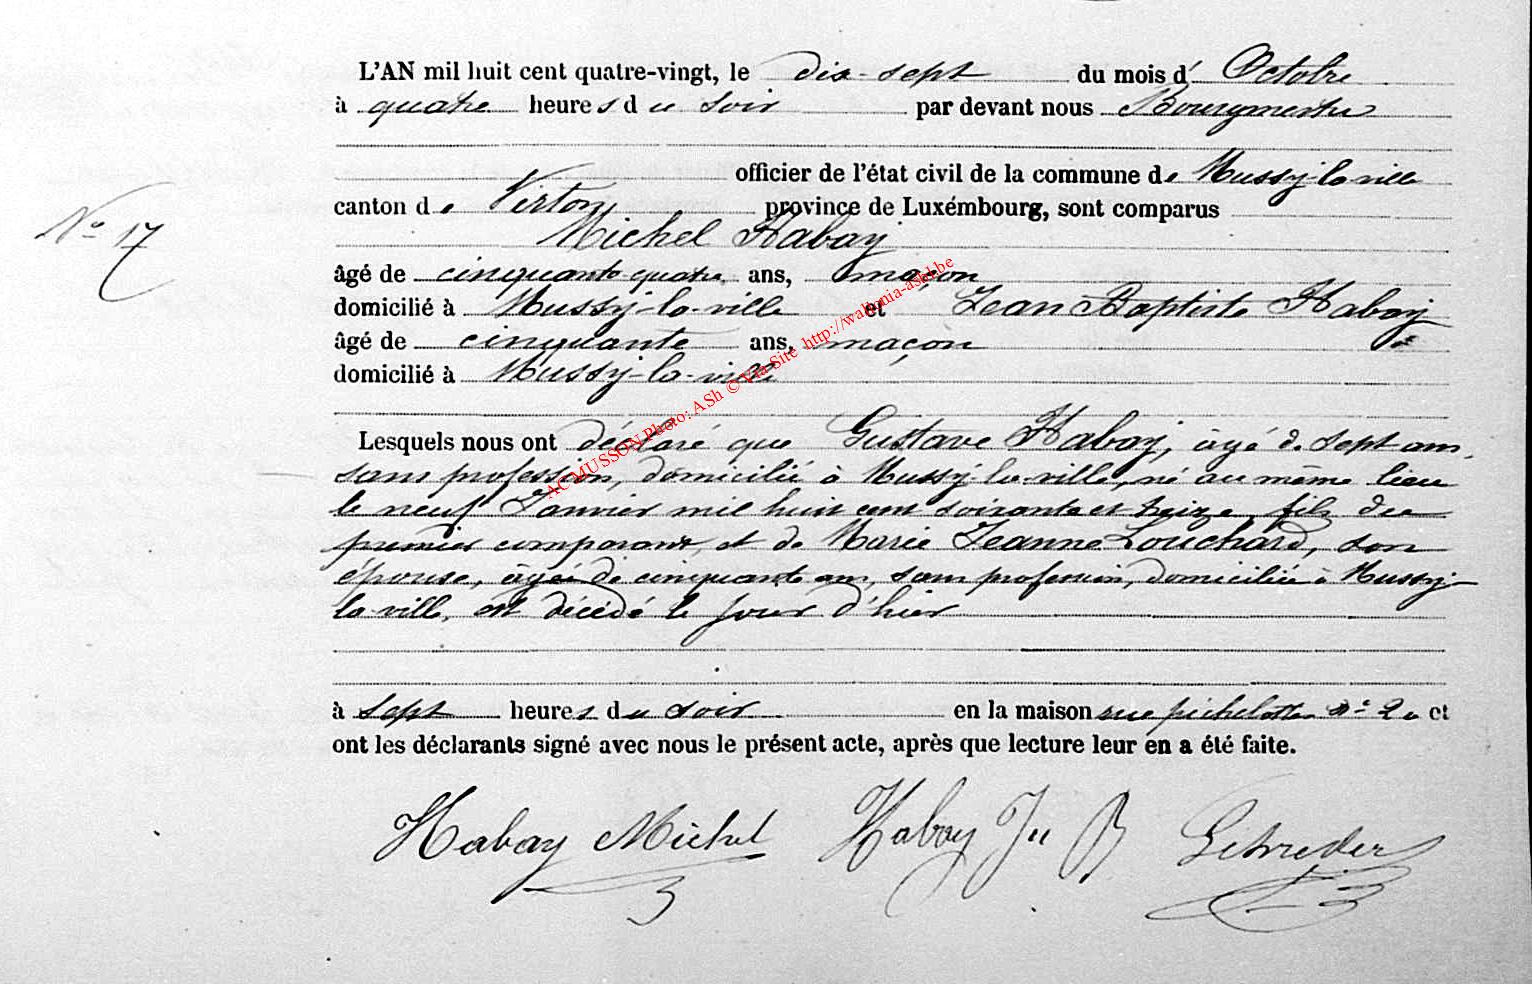 L'AN mil huit cent quatre-vingt, le dix-sept du mois d' Octobre
à quatre heures du soir par devant nous Bourgmestre
officier de l'état civil de la commune de Mussy-la-ville
N° 17
canton de Virton province de Luxémbourg, sont comparus
Michel Habay
âgé de cinquante-quatre ans, maçon
domicilié à Mussy-la-ville et Jean Baptiste Habay
âgé de cinquante ans, maçon
domicilié à Mussy-la-ville
ACMUSSON Photo: ASh © Via Site http://wallonia-asbl.be
Lesquels nous ont déclaré que Gustave Habay, âgé de sept ans,
sans profession, domicilié à Mussy-la-ville, né au même lieu
le neuf Janvier mil huit cent soixante et treize, fils du
premier comparant, et de Marie Jeanne Louchard, son
épouse, âgée de cinquante ans, sans profession, domiciliée à Mussy-
la-ville, est décédé le jour d'hier
à sept heures du soir en la maison rue n° 2 et
ont les déclarants signé avec nous le présent acte, après que lecture leur en a été faite.
Habay Michel Habay Jn B